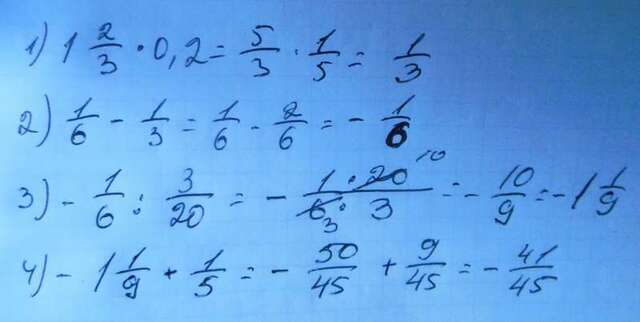 1) 1 2/3 · 0,2 = 5/3 · 1/5 = 1/3
2) 1/6 - 1/3 = 1/6 - 2/6 = - 1/6
3) - 1/6 : 3/20 = - (1 · 20 10)/(6 3 · 3) = - 10/9 = - 1 1/9
4) - 1 1/9 + 1/5 = - 50/45 + 9/45 = - 41/45